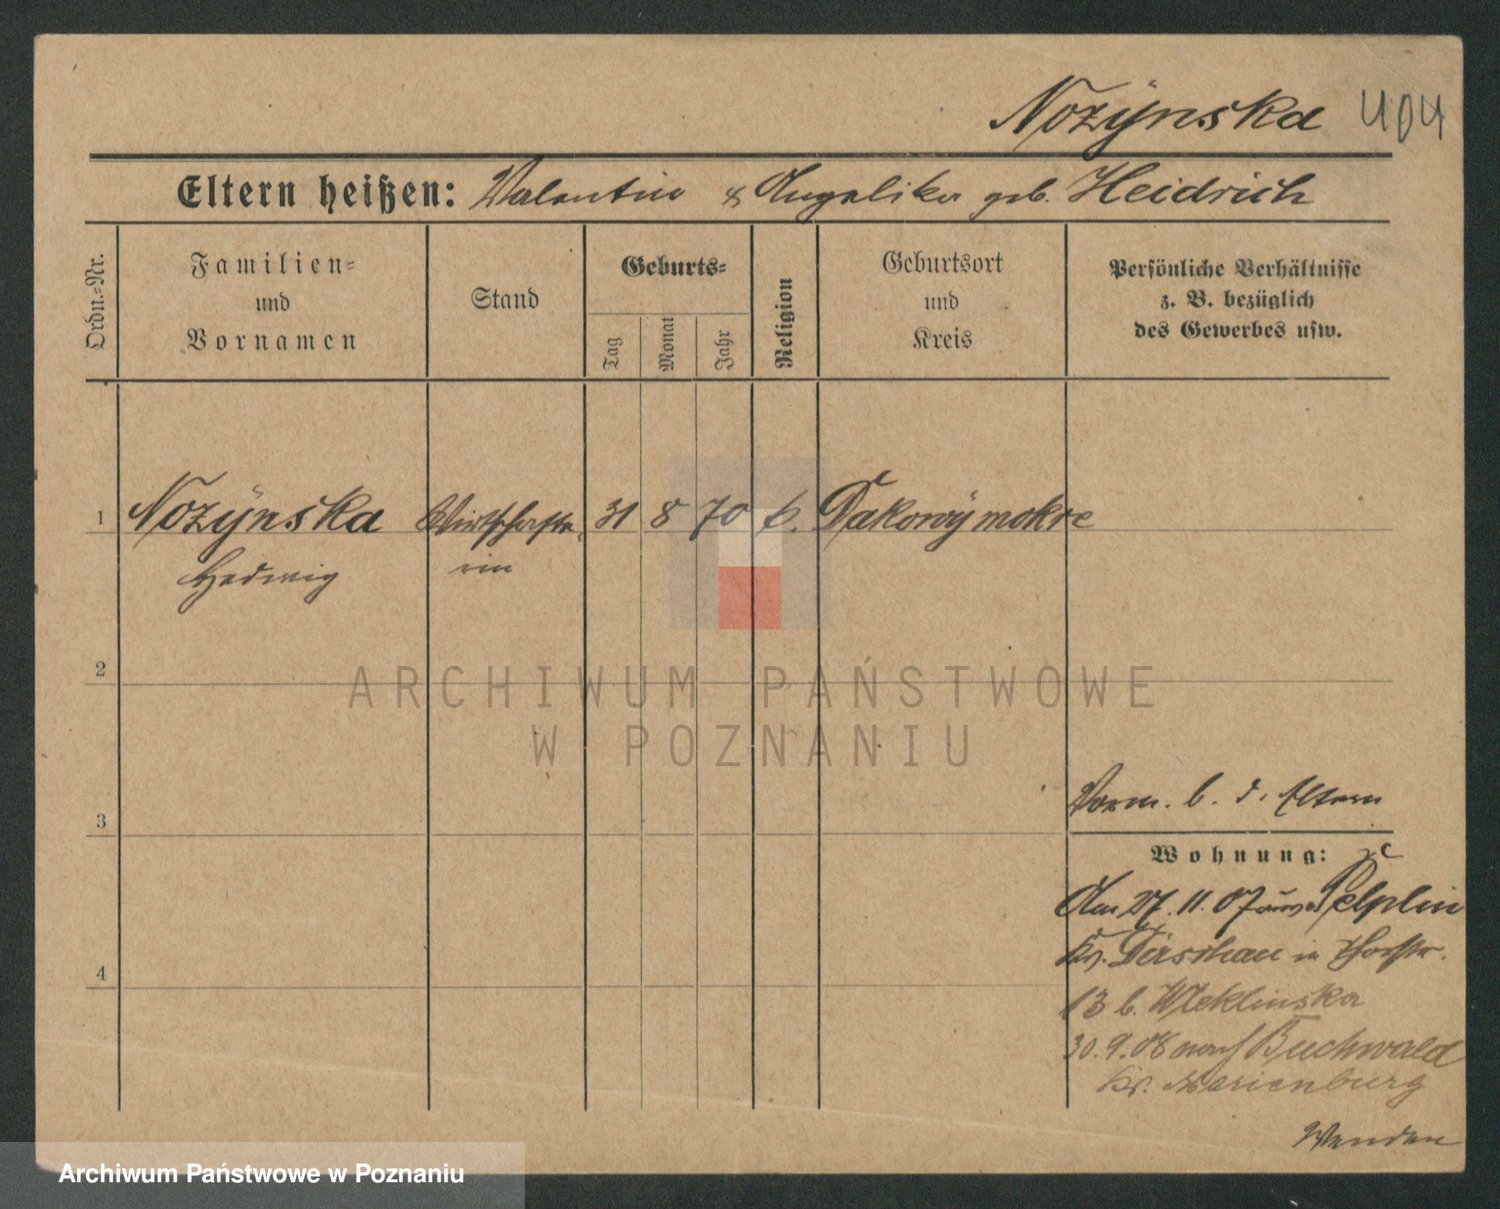 Nozÿnska 404
Eltern heißen: Valentin & Angelika geb. Heidrich
Ordn.-Nr.
Familien-
und
Vornamen
Stand
Geburts-
Tag
Monat
Jahr
Religion
Geburtsort
und
Kreis
Persönliche Verhältnisse
z. B. bezüglich
des Gewerbes usw.
1 Nozÿnska Wirtschafte- 31 8 70 k. Dakowÿ mokre
Hedwig rin
2
ARCHIWUM PAŃSTWOWE
W POZNANIU
Vorm. b. d. Eltern
3
Wohnung:
Am 27. 11. 07 Pelplin
4
Kr. Dirschau in
13 b. Wleklinska
30. 9. 08 nach Buchwald
Kr. Marienburg
Wenden
Archiwum Państwowe w Poznaniu